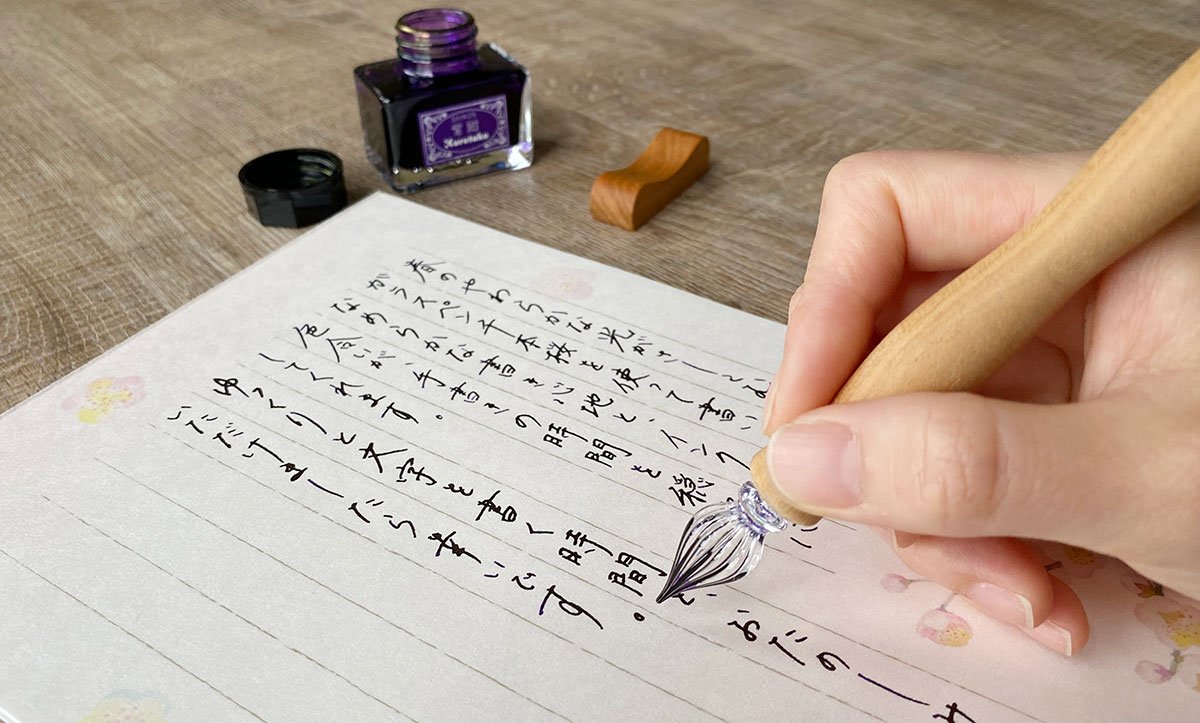 SHIKON
紫紺
Kuretake
春のやわらかな光がさし
ガラスペン千本桜を使って書い
なめらかな書き心地と、インク
色合いが、手書きの時間を
してくれます。
ゆっくりと文字を書く時間を、おたのしみ
いただけましたら幸いです。